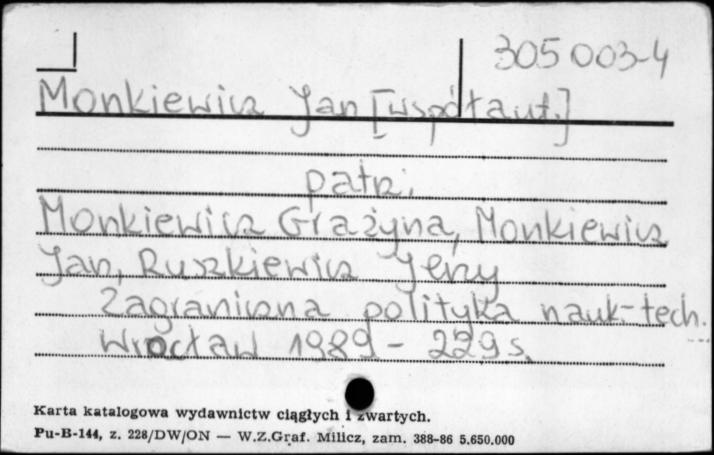 305 003-4
Monkiewicz Jan [współaut.]
patrz.
Monkiewicz Grażyna, Monkiewicz
Jan, Ruszkiewicz Jerzy
Zagraniczna polityka nauk-tech.
...
Wrocław 1989 - 229 s.
Karta katalogowa wydawnictw ciągłych i zwartych.
Pu-B-144, z. 228/DW/ON — W.Z.Graf. Milicz, zam. 388-86 5.650.000